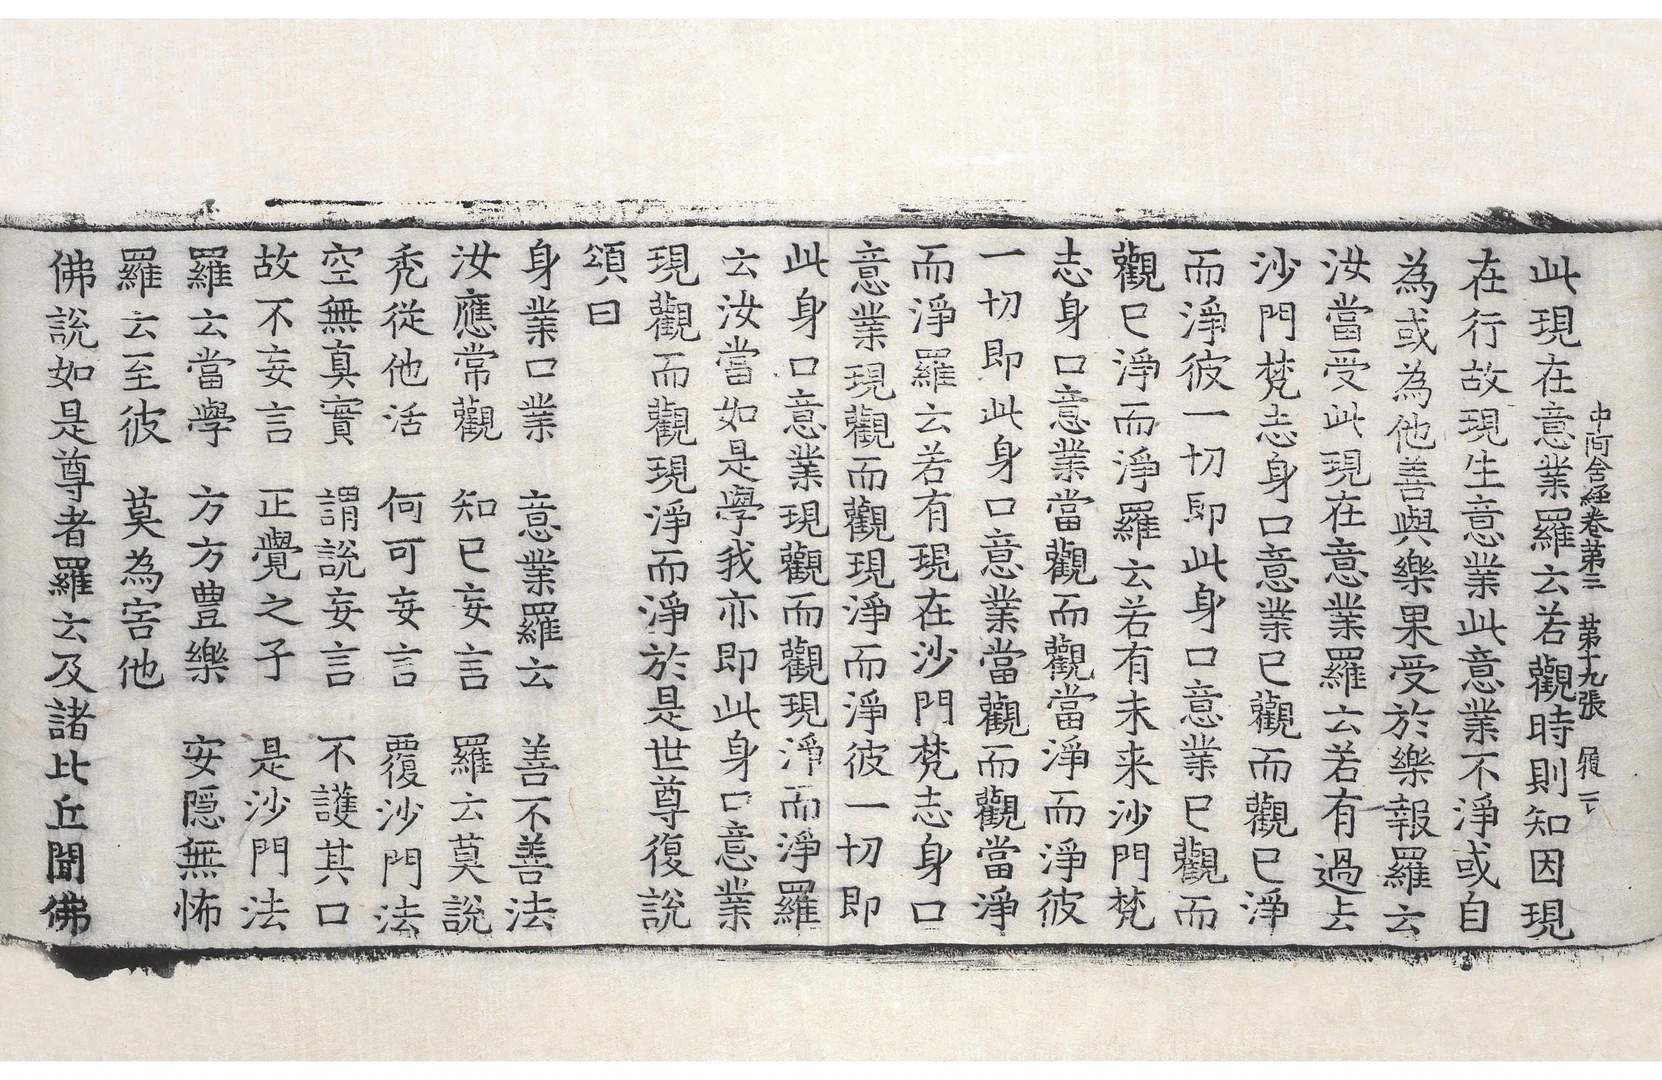 中阿含經卷第三 第十九張 履
此現在意業羅云若觀時則知因現
在行故現生意業此意業不淨或自
為或為他善與樂果受於樂報羅云
汝當受此現在意業羅云若有過去
沙門梵志身口意業已觀而觀已淨
而淨彼一切即此身口意業已觀而
觀已淨而淨羅云若有未来沙門梵
志身口意業當觀而觀當淨而淨彼
一切即此身口意業當觀而觀當淨
而淨羅云若有現在沙門梵志身口
意業現觀而觀現淨而淨彼一切即
此身口意業現觀而觀現淨而淨羅
云汝當如是學我亦即此身口意業
現觀而觀現淨而淨於是世尊復說
頌曰
身業口業 意業羅云 善不善法
汝應常觀 知已妄言 羅云莫說
禿從他活 何可妄言 覆沙門法
空無真實 謂說妄言 不護其口
故不妄言 正覺之子 是沙門法
羅云當學 方方豊樂 安隱無怖
羅云至彼 莫為害他
佛說如是尊者羅云及諸比丘聞佛